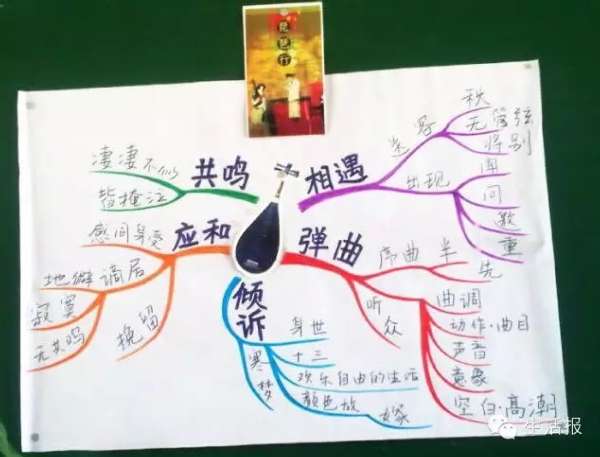 琵琶行
共鸣
凄凄不似
皆掩泣
相遇
送客
秋
无管弦
将别
出现
问
歌
重
应和
感同身受
谪居
地僻
寂寞
无共鸣
挽留
弹曲
序曲
半
先
听众
曲调
动作·曲目
声音
意象
空白·高潮
倾诉
身世
十三
欢乐自由的生活
颜色故
嫁
寒
梦
生活报